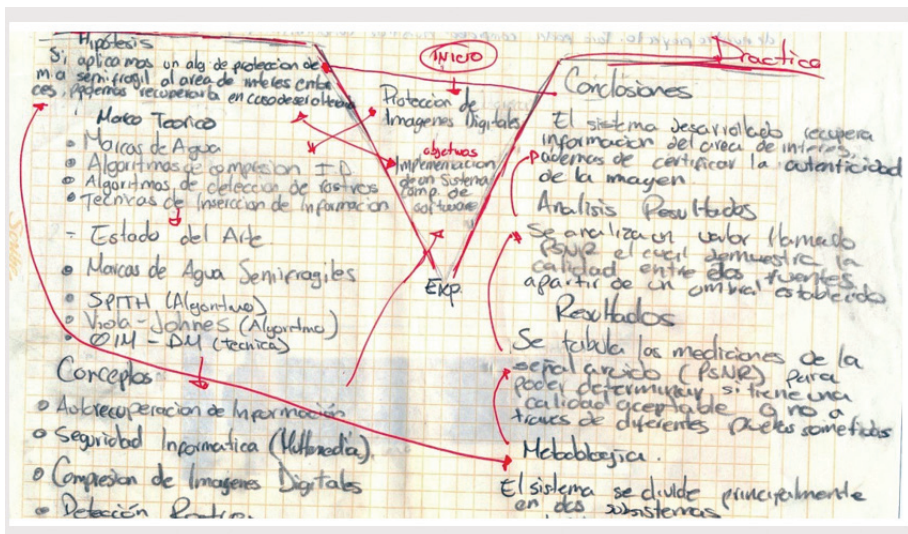 Hipótesis
Si aplicamos un alg de proteccion de
m.a semifragil al area de interes enton
ces, podemos recuperarla en caso de ser alterada
Marco Teorico
• Marcas de Agua
• Algoritmos de compresion I.D
• Algoritmos de deteccion de rostros
• Tecnicas de Insercion de Informacion
- Estado del Arte
• Marcas de Agua Semifragiles
• SPITH (Algoritmo)
• Viola-Johnes (Algoritmo)
• QIM - DM (tecnica)
Conceptos
• Autorecuperacion de Información
• Seguridad Informatica (Multimedia)
• Compresion de Imagenes Digitales
• Detección Rostros
INICIO
Protección de
Imagenes Digitales
objetivos
Implementacion
de un Sistema
comp. de
software
Exp.
Practico
Conclusiones
El sistema desarrollado recupera
informacion del area de interes,
ademas de certificar la autenticidad
de la imagen
Analisis Resultados
Se analiza un valor llamado
PSNR el cual demuestra la
calidad entre dos fuentes
apartir de un umbral establecido
Resultados
Se tabula las mediciones de la
señal a ruido (PSNR) para
poder determinar si tiene una
calidad aceptable o no a
traves de diferentes sometidas
Metodologica.
El sistema se divide principalmente
en dos subsistemas